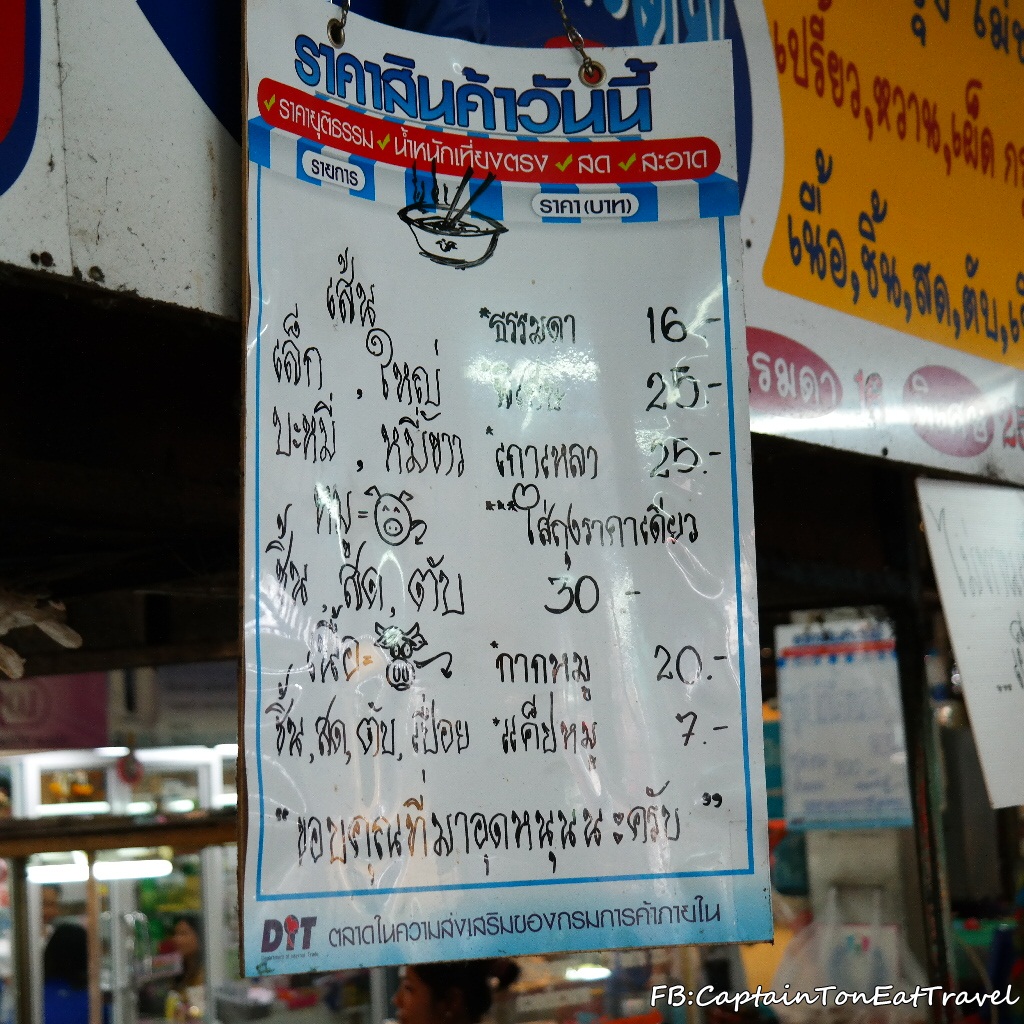 ราคาสินค้าวันนี้
✓ราคายุติธรรม ✓น้ำหนักเที่ยงตรง ✓สด ✓สะอาด
รายการ
ราคา(บาท)
เส้น
เล็ก , ใหญ่
บะหมี่ , หมี่ขาว
หมู =
ชิ้น สด, ตับ
เนื้อ =
ชิ้น, สด, ตับ, เปื่อย
*ธรรมดา 16.-
พิเศษ 25.-
*เกาเหลา 25.-
***ใส่ถุงราคาเดียว
30 -
*กากหมู 20.-
*แค็ปหมู 7.-
"ขอบคุณที่มาอุดหนุนนะครับ"
DIT ตลาดในความส่งเสริมของกรมการค้าภายใน
เปรี้ยว,หวาน,เผ็ด
เนื้อ,ชิ้น,สด,ตับ,
รรมดา
พิเศษ
FB:CaptainTonEatTravel